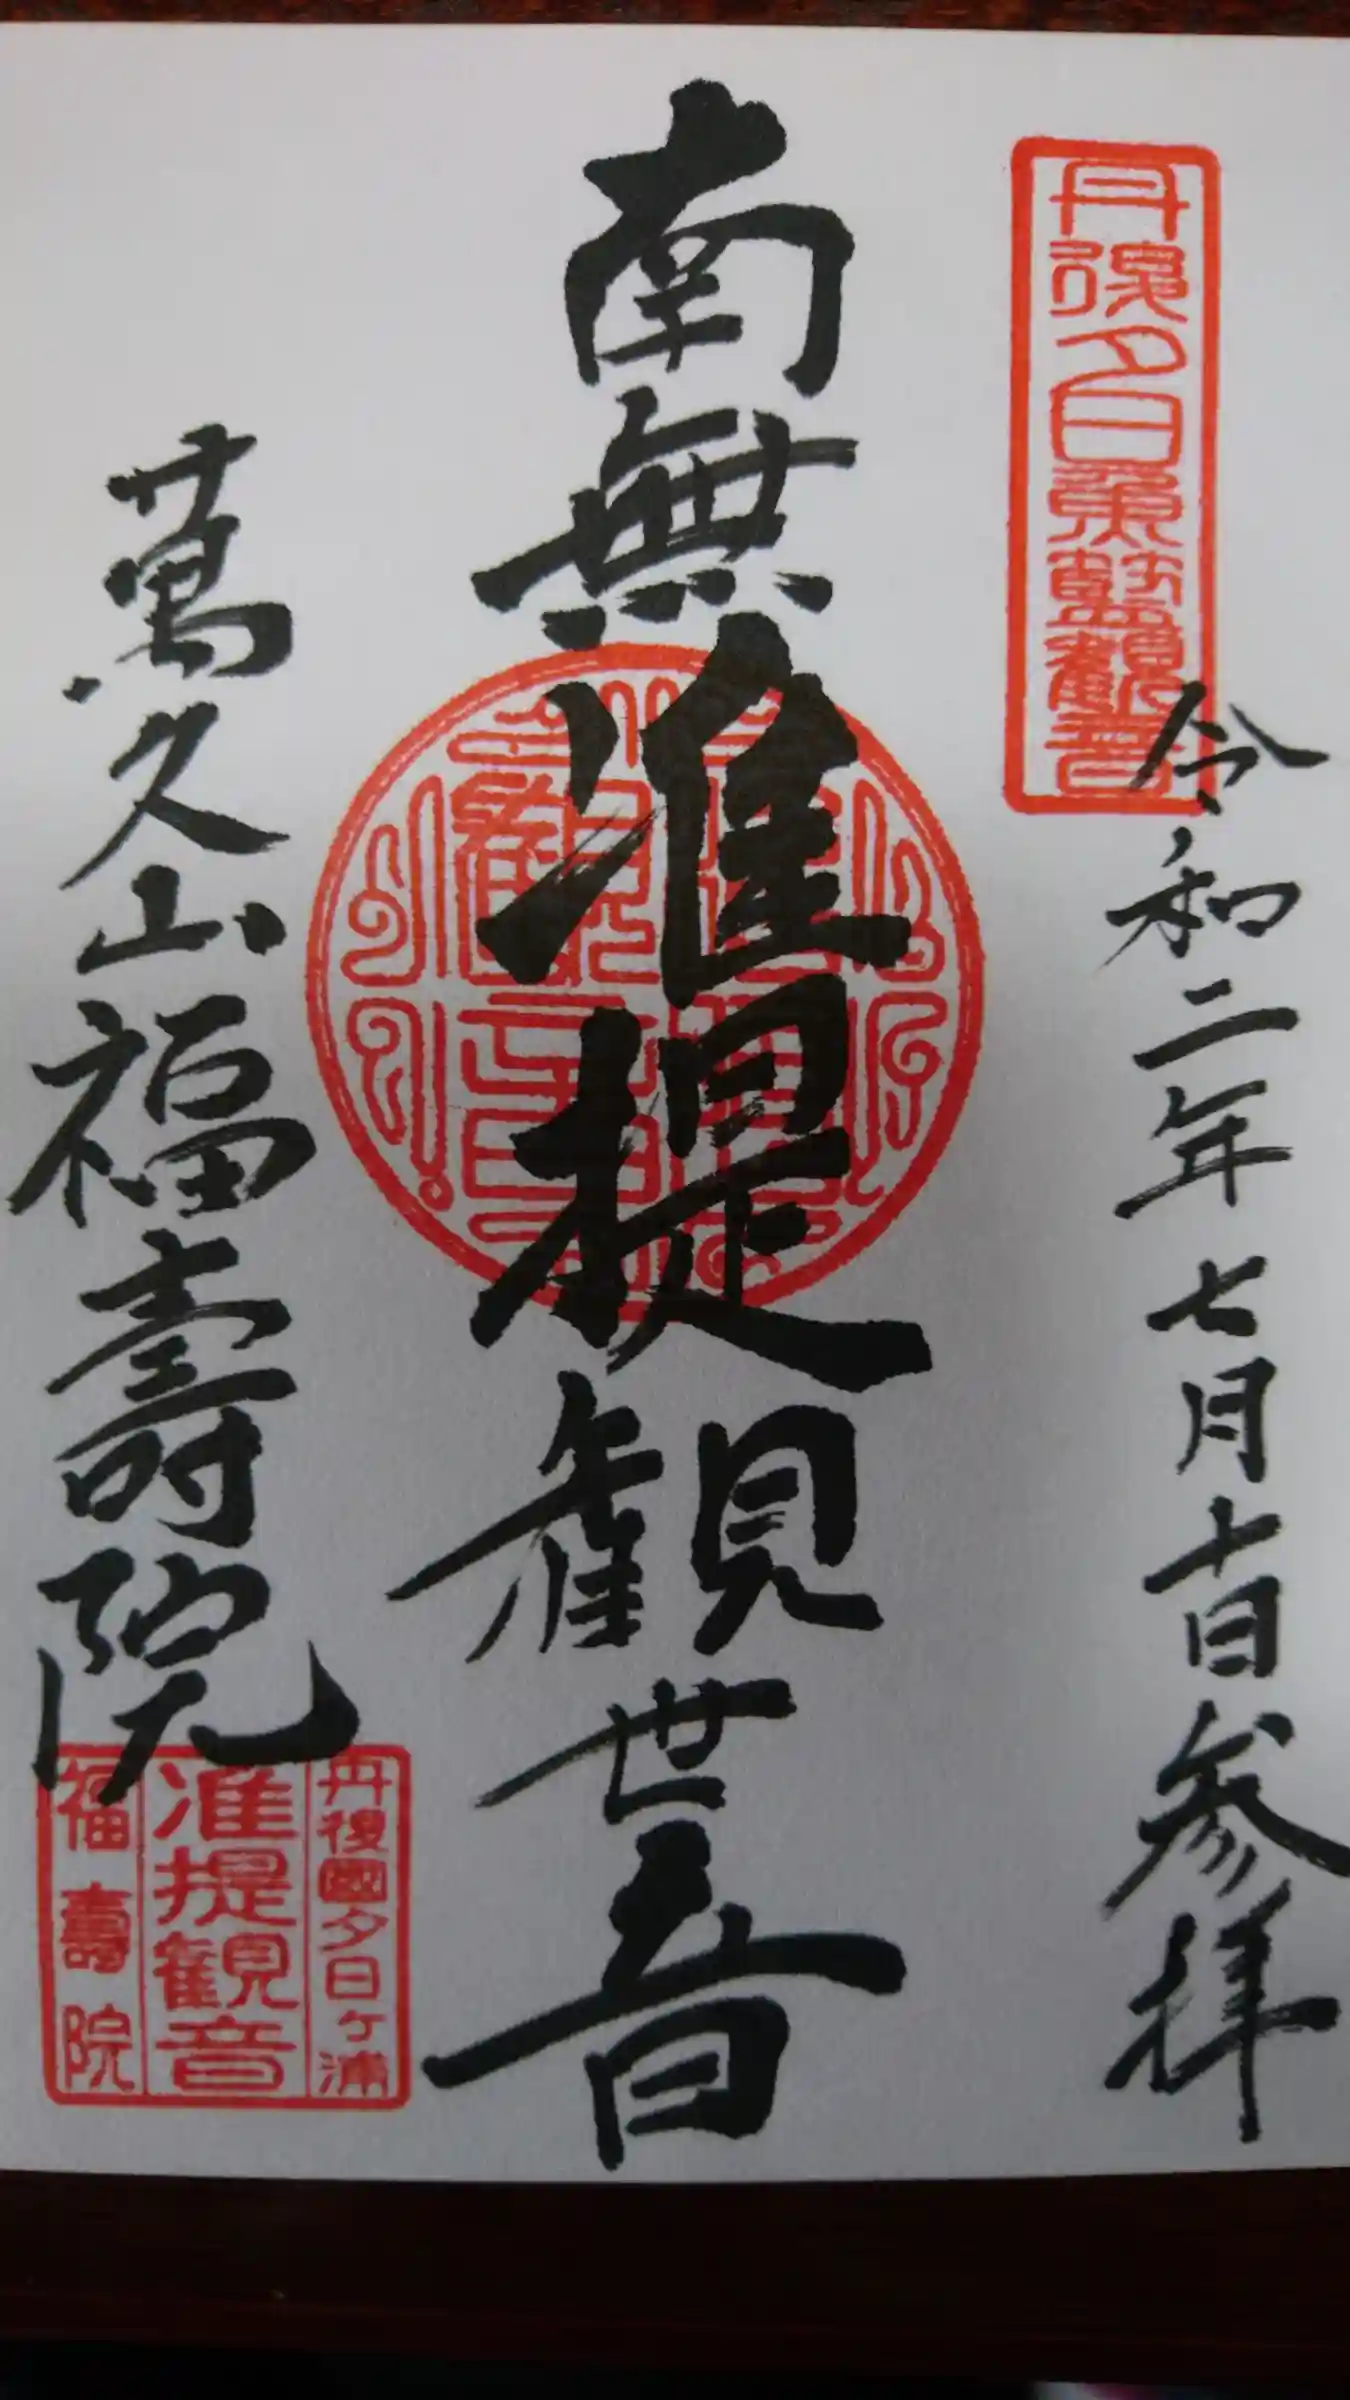 丹後夕日魚籃觀音
令和二年七月十日参拝
南無准提観世音
萬久山福壽院
丹後國夕日ヶ浦
准提観音
福壽院